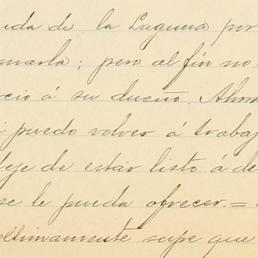 uda de la Laguna por
marla; pero al fin no
ció á su dueño. Ahora
i puedo volver á trabaj
deje de estar listo á de
se le pueda ofrecer. =
ultimamente supe que